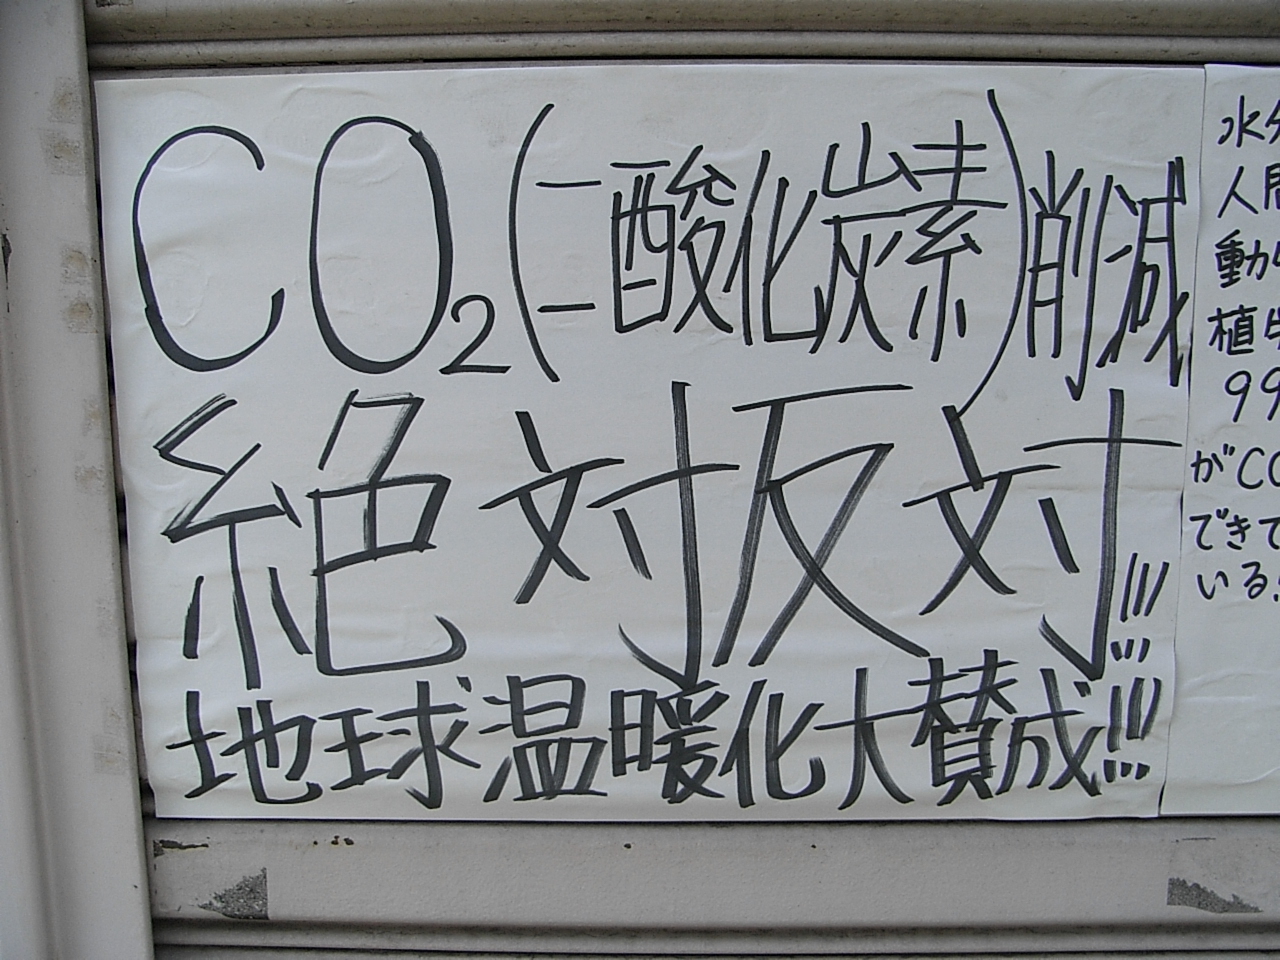 CO₂(二酸化炭素)削減
絶対反対!!!
地球温暖化大賛成!!!
水分
人間
動
植
99
がCO
できて
いる